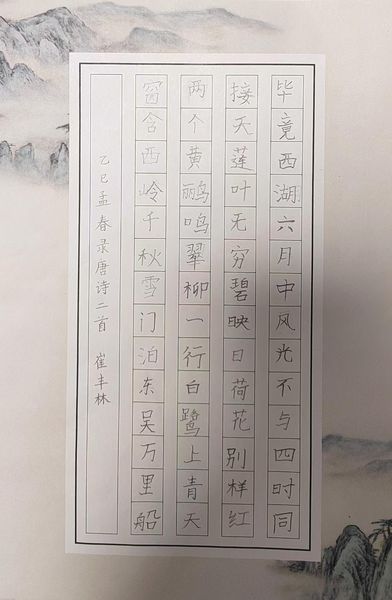 毕竟西湖六月中风光不与四时同
接天莲叶无穷碧映日荷花别样红
两个黄鹂鸣翠柳一行白鹭上青天
窗含西岭千秋雪门泊东吴万里船
乙巳孟春录唐诗二首 崔丰林